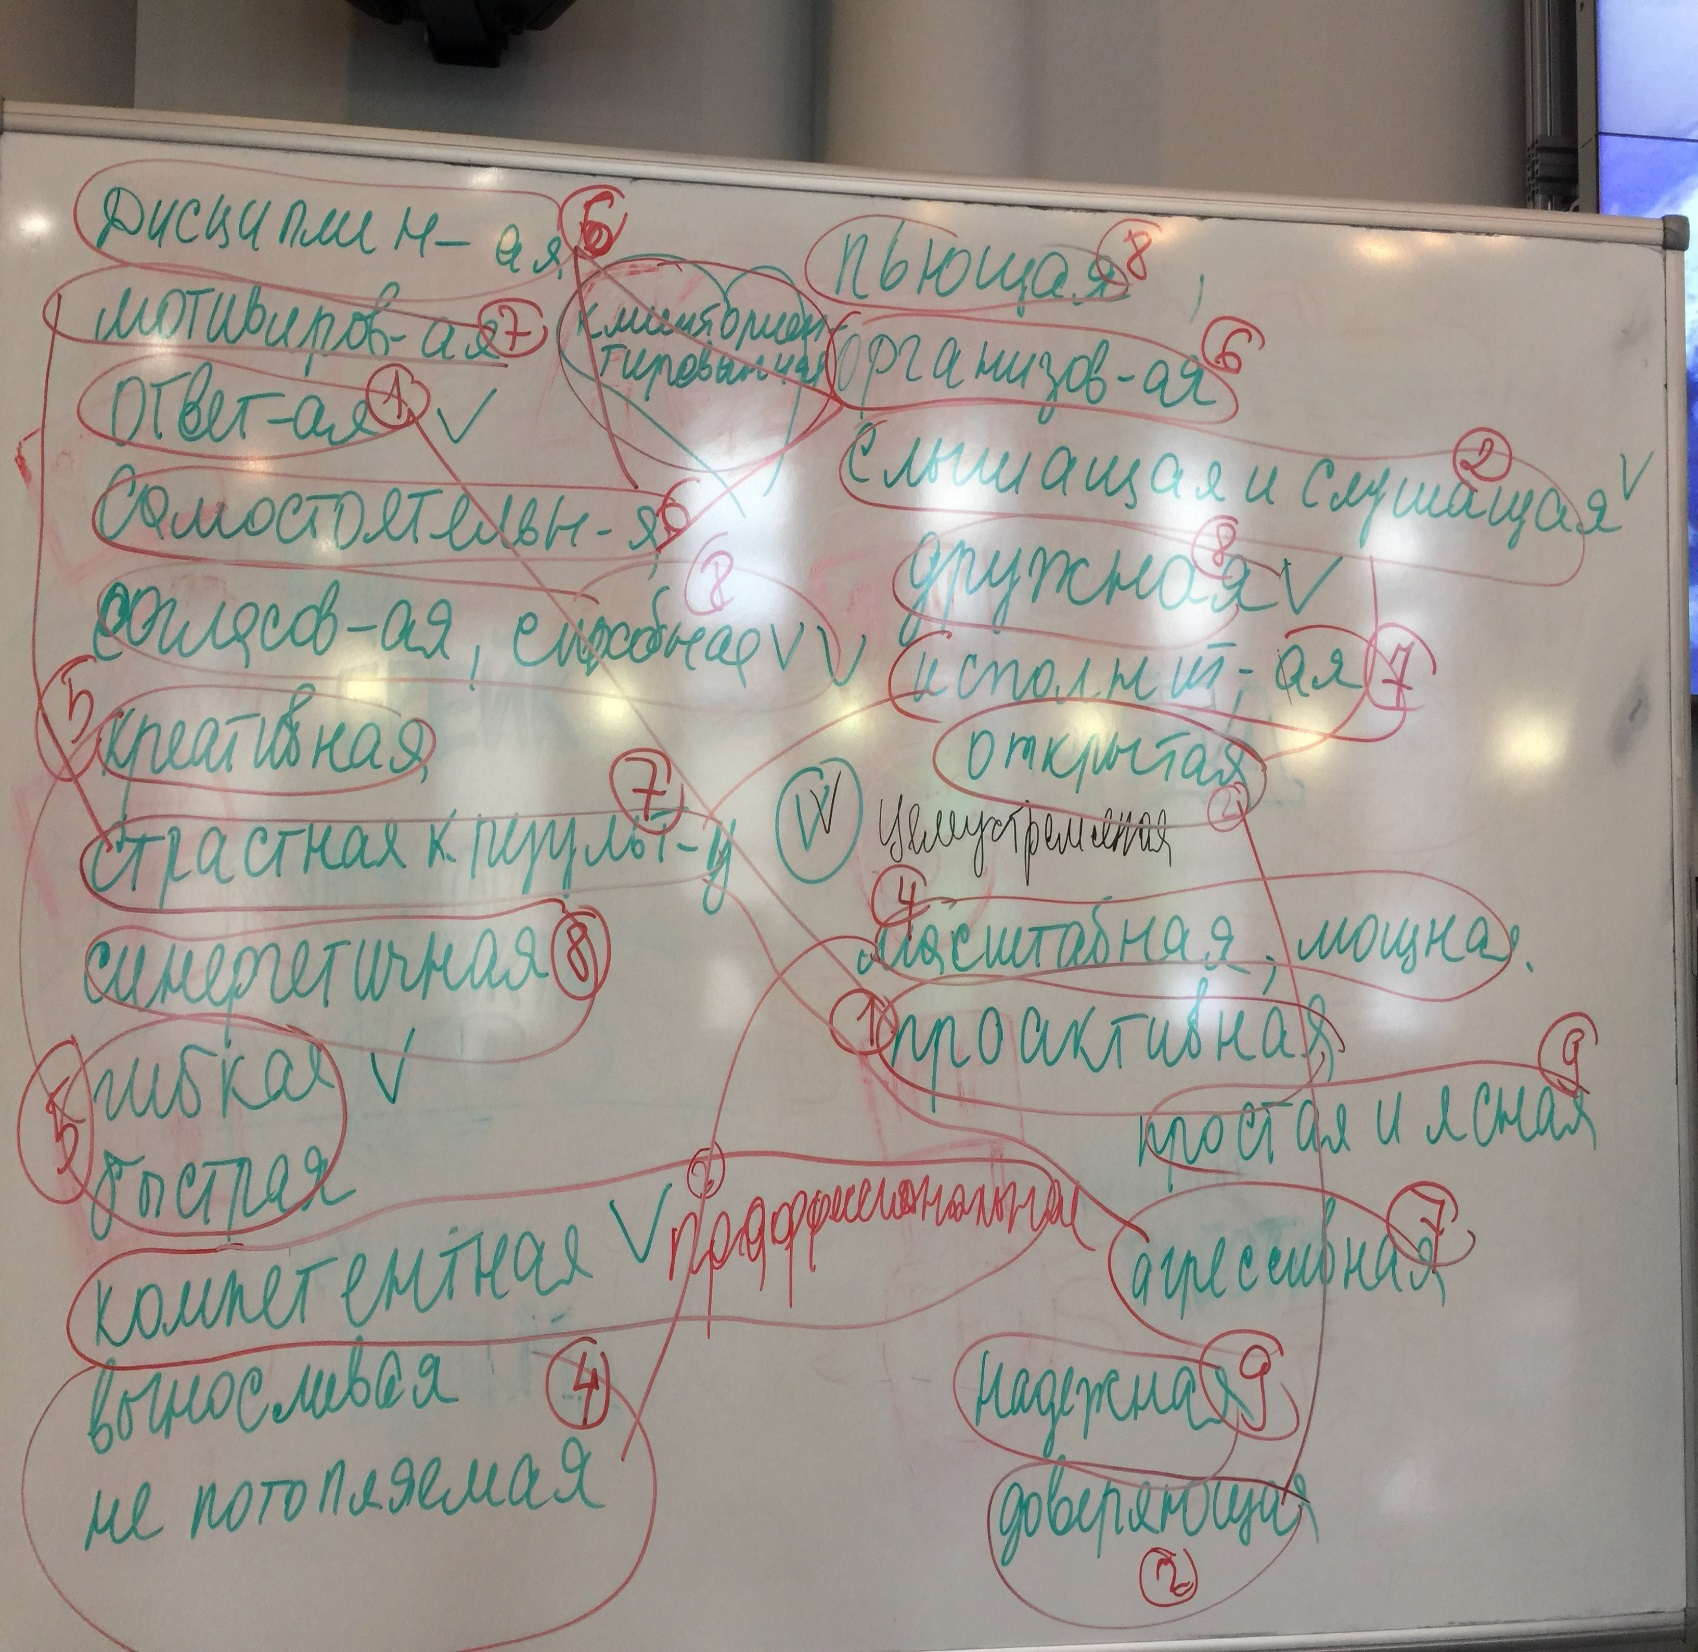 дисциплин-ая 6
мотивиров-ая 7
ответ-ая 1 V
самостоятельн-я 6
согласов-ая, 8 V V
5 креативная
страстная к 7 V V
синергетичная 8
5 гибкая V
быстрая
компетентная V 2
выносливая 4
не потопляемая
клиенториен-
тированная
пьющая 8
организов-ая 6
слышащая и слушающая 2 V
дружная 8 V
исполнит-ая 7
открытая 2
целеустремленная
4 масштабная, мощная.
1 проактивная
простая и ясная 9
агрессивная 7
надежная 9
доверяющая
2